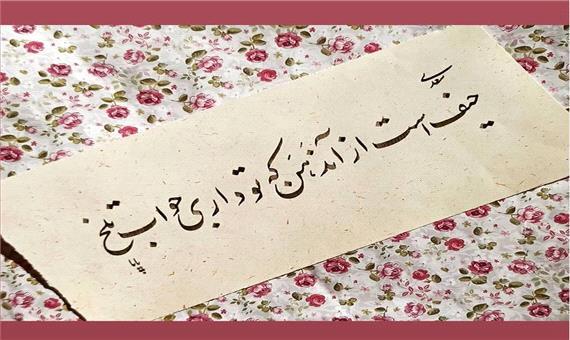 سعدی
حیف است از آن دهن که تو داری جواب تلخ